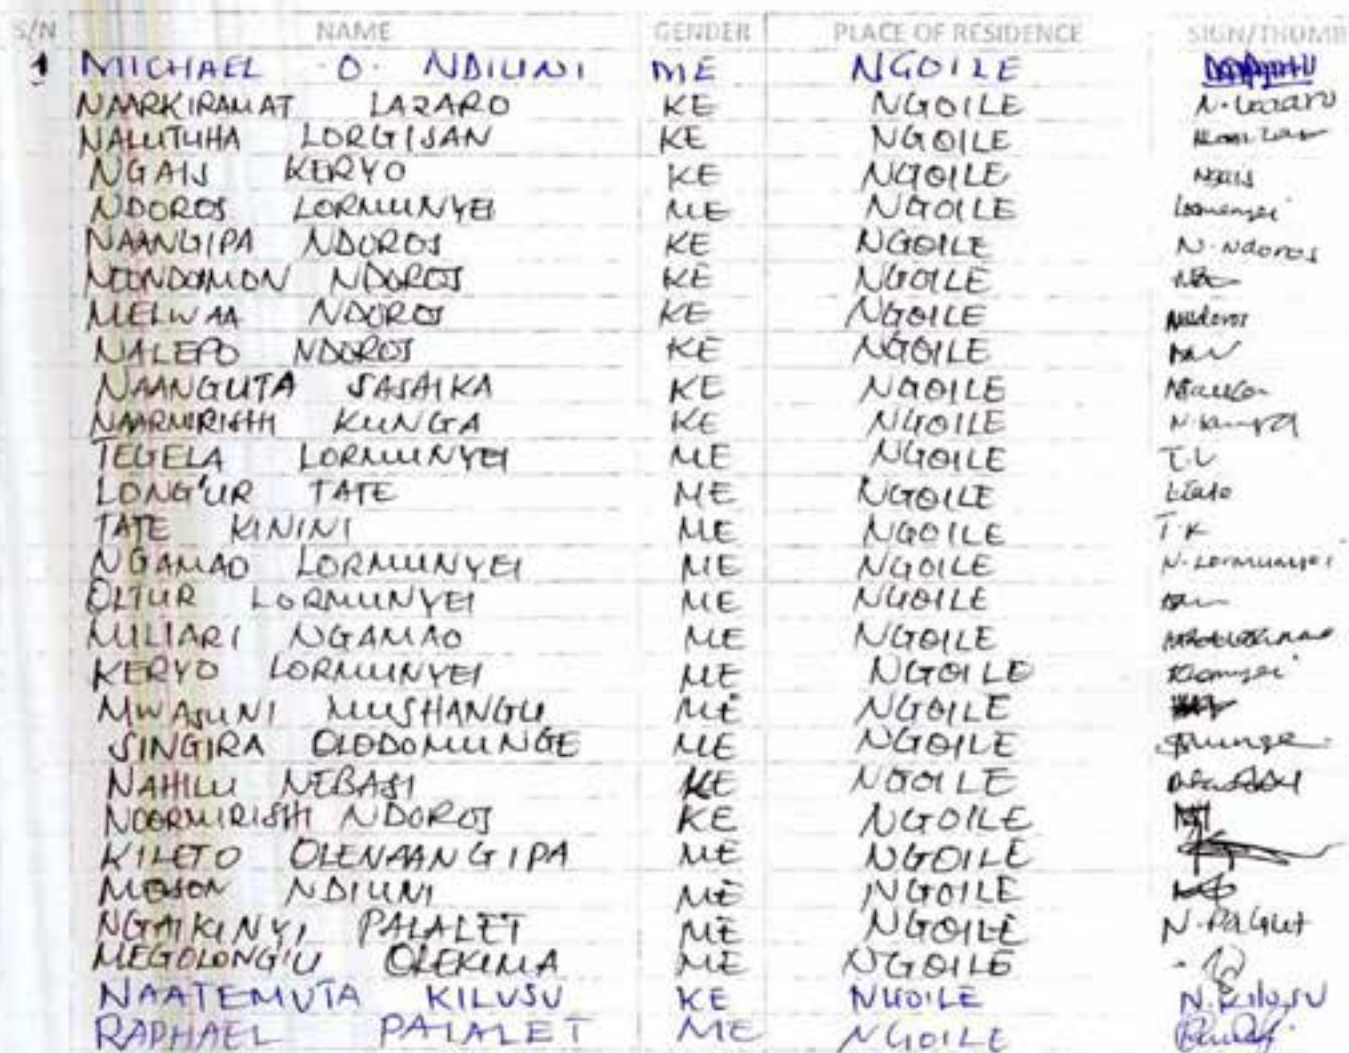 S/N NAME GENDER PLACE OF RESIDENCE SIGN/THUMB
1 MICHAEL O. NDILINI ME NGOILE
NAARKIRAMAT LAZARO KE NGOILE N. Lazaro
NALUTUHA LORGISAN KE NGOILE
NGAIS KERYO KE NGOILE NGAIS
NDOROS LORMUNYEI ME NGOILE
NAANGIPA NDOROS KE NGOILE N. Ndoros
NOONDOMON NDOROS KE NGOILE
MELWAA NDOROS KE NGOILE
NALEPO NDOROS KE NGOILE
NAANGUTA SASAIKA KE NGOILE
NAARMIRISHI KUNGA KE NGOILE
TEGELA LORMUNYEI ME NGOILE T.L
LONG'UR TATE ME NGOILE
TATE KININI ME NGOILE T.K
NGAMAO LORMUNYEI ME NGOILE N. Lormunyei
OLTUR LORMUNYEI ME NGOILE
MILIARI NGAMAO ME NGOILE
KERYO LORMUNYEI ME NGOILE
MWASUNI MUSHANGU ME NGOILE
SINGIRA OLODOMUNGE ME NGOILE
NAHILU NEBASI KE NGOILE
NOORMIRISHI NDOROS KE NGOILE
KILETO OLENAANGIPA ME NGOILE
MOSON NDILINI ME NGOILE
NGAIKINYI PALALET ME NGOILE
MEGOLONG'U OLEKIMA ME NGOILE
NAATEMUTA KILUSU KE NGOILE N. KILUSU
RAPHAEL PALALET ME NGOILE